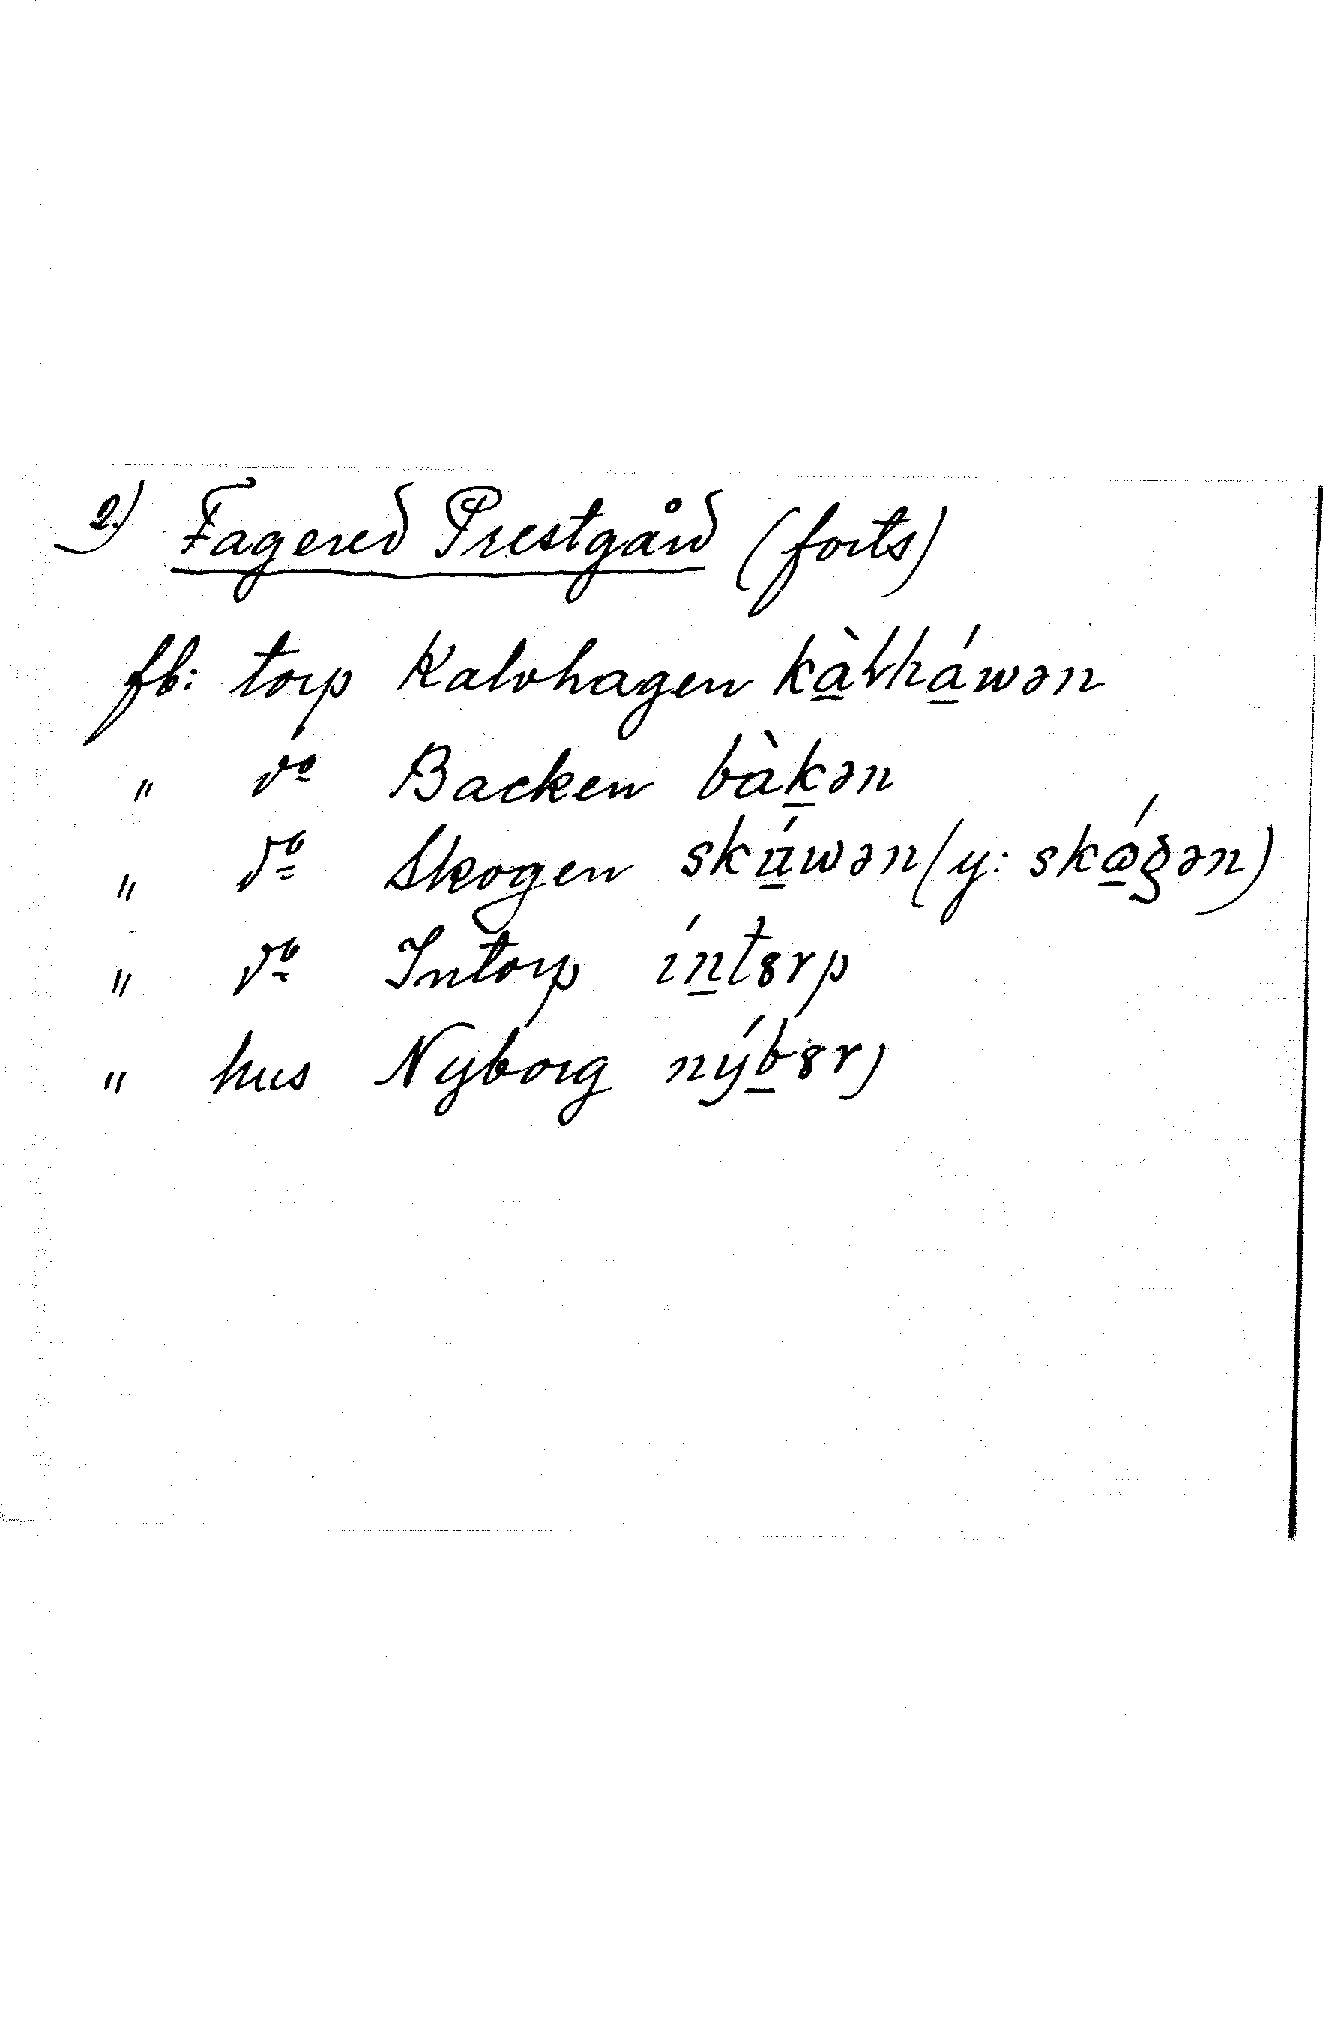 2) Fagered Prestgård (forts)
fb: torp Kalvhagen kàl̵háwən
" do Backen bàkən
" do Skogen skúwən (y: skǿgən)
" do Intorp íntɤrp
" hus Nyborg nýbɤrj